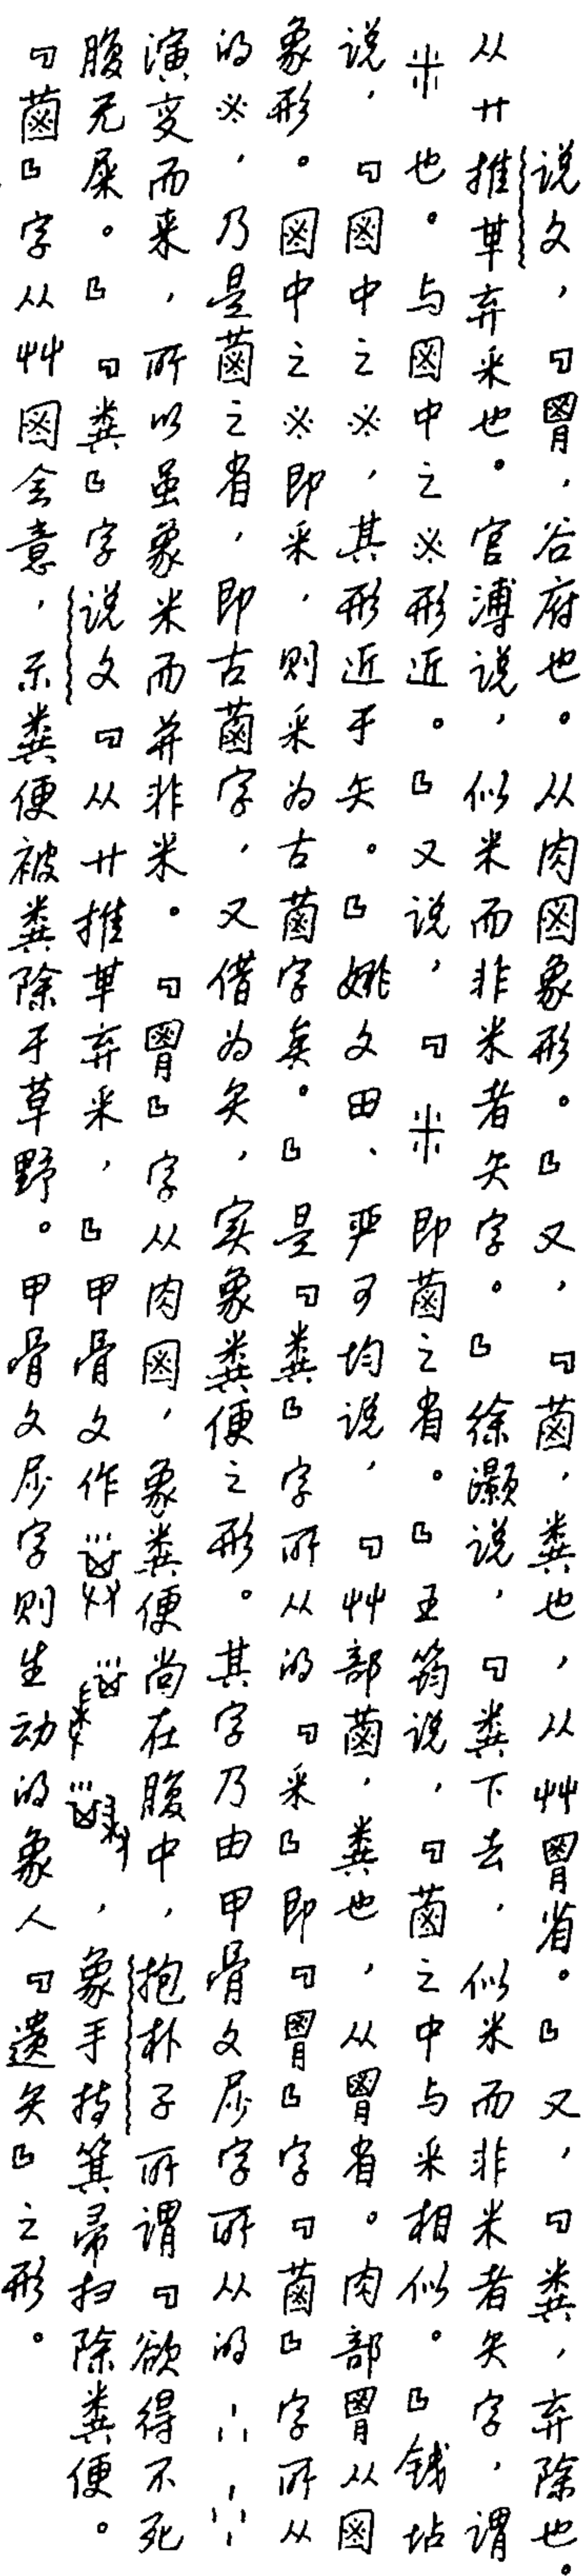 说文，「𦞅，谷府也。从肉𡇒象形。」又，「菡，糞也，从艸𦞅省。」又，「糞，弃除也。
从廾推𠦒弃釆也。官溥说，似米而非米者矢字。」徐灏说，「糞下去，似米而非米者矢字，谓
也。与𡇒中之※形近。」又说，「即菡之省。」王筠说，「菡之中与釆相似。」钱坫
说，「𡇒中之※，其形近于矢。」姚文田、严可均说，「艸部菡，糞也，从𦞅省。肉部𦞅从𡇒
象形。𡇒中之※即釆，则釆为古菡字矣。」是「糞」字所从的「釆」即「𦞅」字「菡」字所从
的※，乃是菡之省，即古菡字，又借为矢，实象糞便之形。其字乃由甲骨文屎字所从的
演变而来，所以虽象米而并非米。「𦞅」字从肉𡇒，象糞便尚在腹中，抱朴子所谓「欲得不死
腹无屎。」「糞」字说文「从廾推𠦒弃釆，」甲骨文作，象手持箕帚扫除糞便。
「菡」字从艸𡇒会意，示糞便被糞除于草野。甲骨文屎字则生动的象人「遗矢」之形。